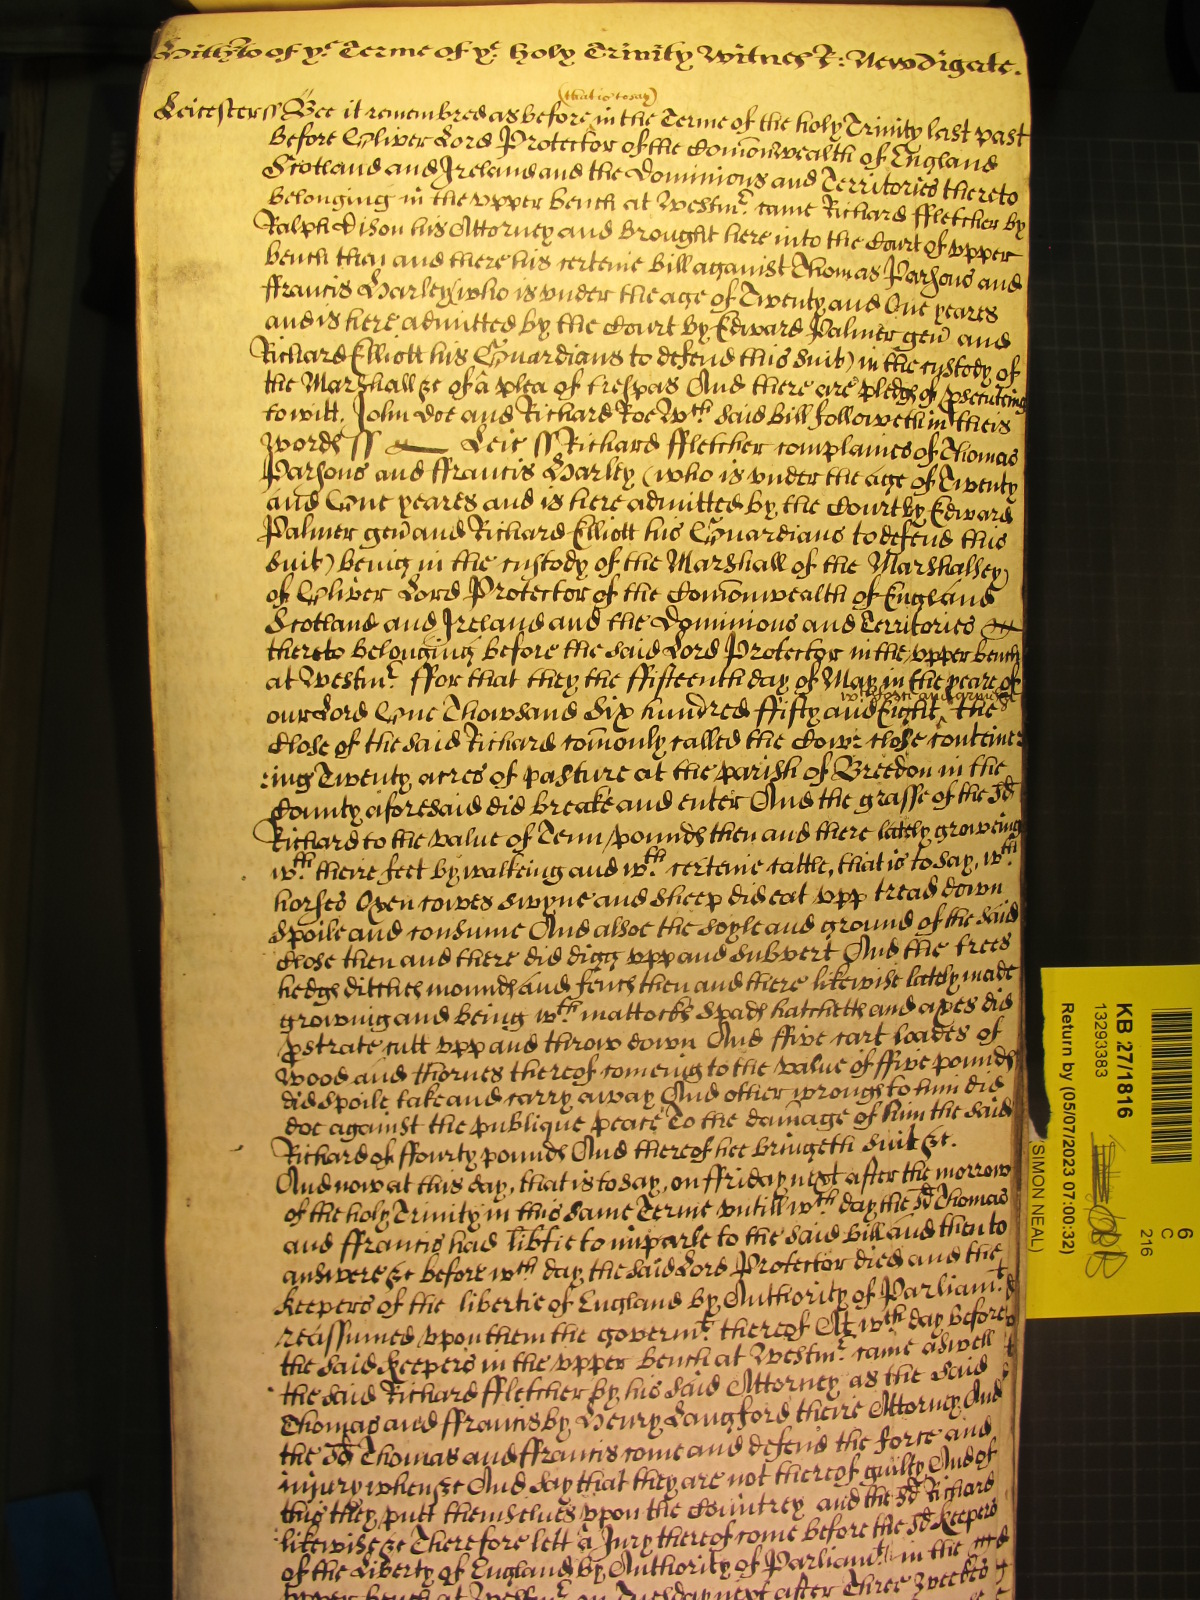 Hitherto of yᵉ Terme of yᵉ holy Trinity Witnes R: Newdigate.
(that is to say)
Leicester ss Bee it remembred as before in the Terme of the holy Trinity last past
before Oliver Lord Protector of the Com̄onwealth of England
Scotland and Ireland and the Dominions and Territories thereto
belonging in the vpper bench at Westmʳ came Richard ffletcher by
Ralph Dison his Attorney and brought here into the Court of vpper
bench then and there his certeine bill against Thomas Parsons and
ffrancis Harley (who is vnder the age of Twenty and One yeares
and is here admitted by the Court by Edward Palmer gen̄ and
Richard Elliott his Guardians to defend this suit) in the custody of
the Marshall &c of a plea of trespas And there are pledges of p̱secuteing
to witt, John Doe and Richard Roe Wᶜʰ said bill followeth in theis
words ss Leic ss Richard ffletcher complaines of Thomas
Parsons and ffrancis Harley (who is vnder the age of Twenty
and One yeares and is here admitted by the Court by Edward
Palmer gen̄ and Richard Elliott his Guardians to defend this
suit) being in the custody of the Marshall of the Marshalsey
of Oliver Lord Protector of the Com̄onwealth of England
Scotland and Ireland and the Dominions and Territories
thereto belonging before the said Lord Protector in the vpper bench
at Westmʳ ffor that they the ffifteenth day of May in the yeare of
wᵗʰ force and armes &c
our Lord One Thowsand Six hundred ffifty and Eight the
Close of the said Richard com̄only called the Cowe close conteine
ing Twenty acres of pasture at the parish of Breedon in the
County aforesaid did breake and enter And the grasse of the sᵈ
Richard to the value of Tenn pounds then and there lately groweing
wᵗʰ theire feet by walkeing and wᵗʰ certeine cattle, that is to say, wᵗʰ
horses Oxen cowes swyne and sheep did eat vpp tread down
spoile and consume And alsoe the soyle and ground of the said
Close then and there did digg vpp and subvert And the trees
hedges ditches mounds and fences then and there likewise lately made
growing and being wᵗʰ mattocks spades hatchetts and axes did
p̱strate cutt vpp and throw down And ffive cart loades of
wood and thornes thereof comeing to the value of ffive pounds
did spoile take and carry away And other wrongs to him did
doe against the publique peace To the dam̄age of him the said
Richard of ffourty pounds And thereof hee bringeth suit &c.
And now at this day, that is to say, on ffriday next after the morrow
of the holy Trinity in this same Terme vntill wᶜʰ day the sᵈ Thomas
and ffrancis had lib̄tie to imparle to the said bill and then to
answere &c before wᶜʰ day the said Lord Protector died and the
Keepers of the libertie of England by Authority of Parliamᵗ
reassumed vpon them the governmᵗ thereof At wᶜʰ day before
the said Keepers in the vpper bench at Westmʳ came aswell
the said Richard ffletcher by his said Attorney as the said
Thomas and ffrancis by Henry Langford theire Attorney And
the sᵈ Thomas and ffrancis come and defend the force and
injury when &c And say that they are not thereof guilty And of
this they putt themselves vpon the Countrey and the sᵈ Richard
likewise &c Therefore lett a Jury thereof come before the sᵈ Keepers
of the Liberty of England by Authority of Parliamᵗ in the
vpper bench at Westmʳ on Tuesday next after Three weekes
KB 27/1816
13293383
Return by (05/07/2023 07:00:32)
(SIMON NEAL)
6
C
216